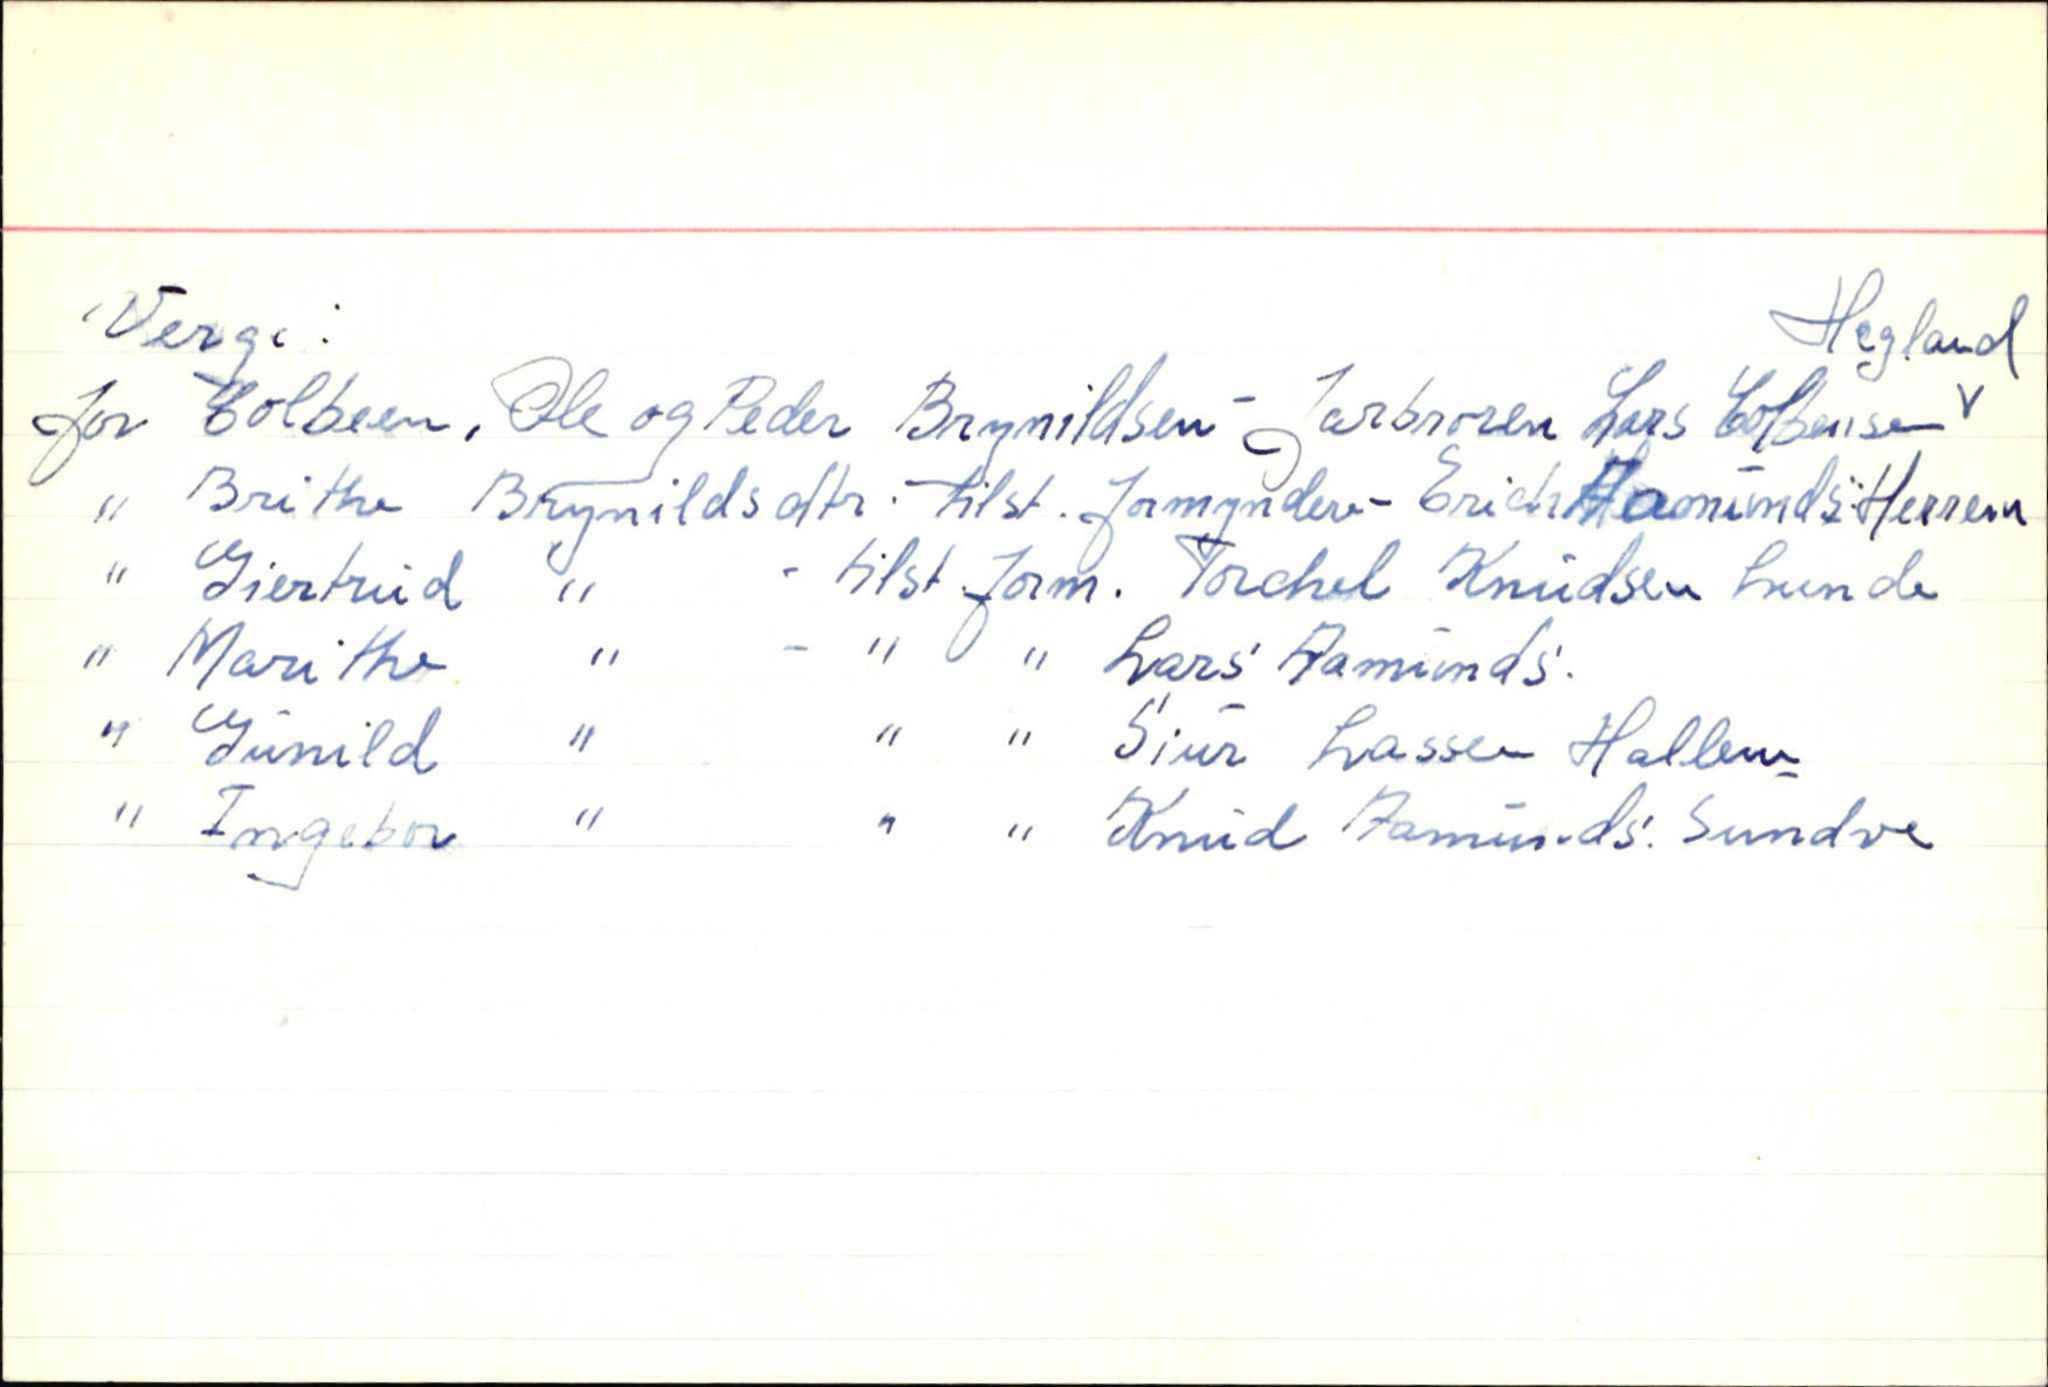 Verge:
Hegland
for Colbeen, Ole og Peder Brynildsen - Farbroren Lars Colbensen ∨
" Brithe Brynildsdtr. - tilst. formyndere - Erich Aamunds: Herrem
" Giertrud " - tilst. form. Torchel Knudsen Lunde
" Marithe " - " " Lars Aamunds.
" Gunild " " " Siur Lassen Hallem
" Ingebor " " " Knud Aamunds. Sundve